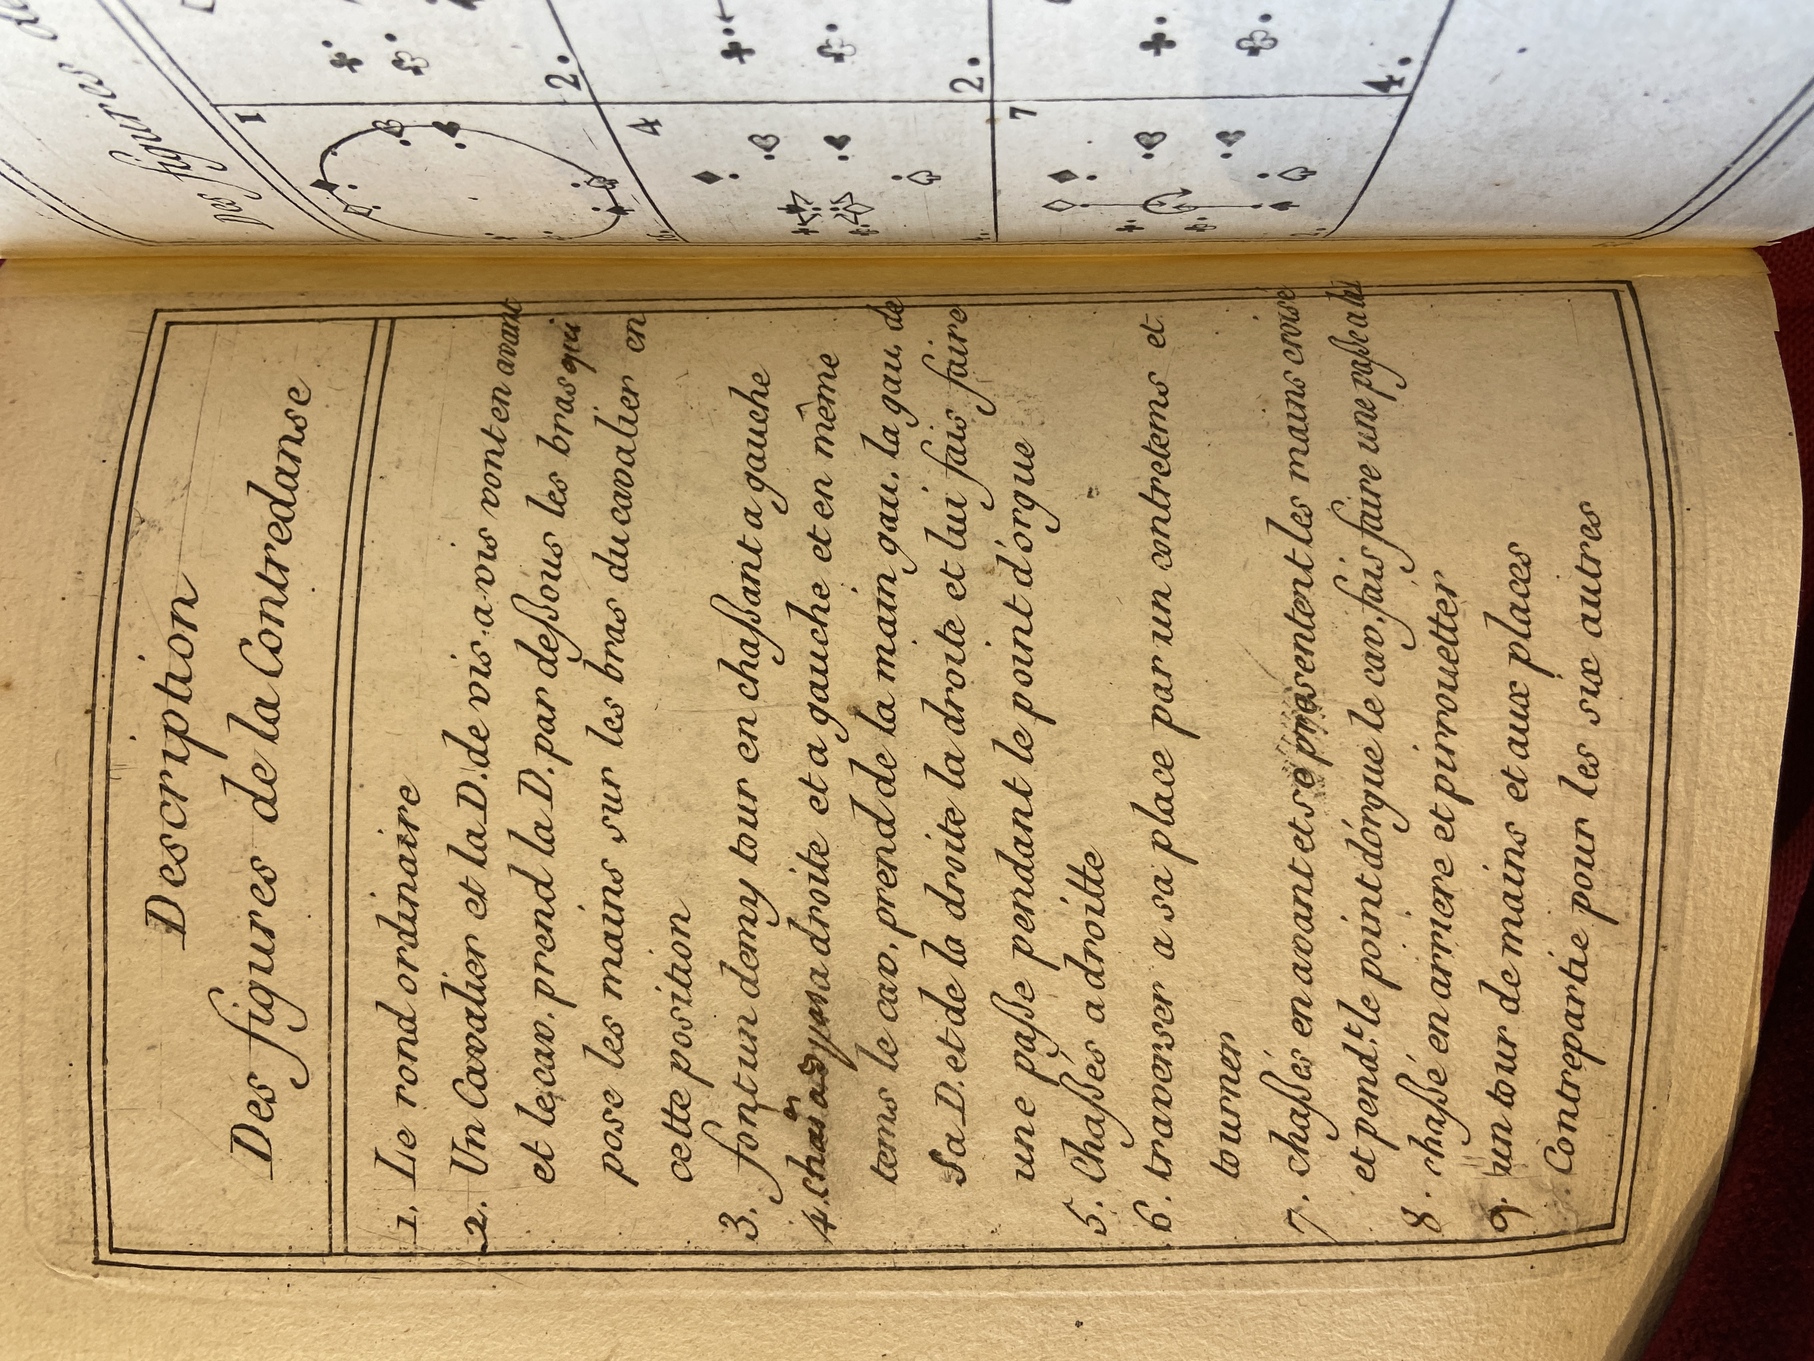 Description
Des figures de la Contredanse
1. Le rond ordinaire
2. Un Cavalier et la D. de vis-a-vis vont en avant
et le cav. prend la D. par dessous les bras qui
pose les mains sur les bras du cavalier en
cette position
3. font un demy tour en chassant a gauche
4. a droite et a gauche et en même
tems le cav. prend de la main gau. la gau. de
Sa D. et de la droite la droite et lui fais faire
une passe pendant le point d'orgue
5. Chassés a droitte
6. traverser a sa place par un contretems et
tourner
7. chassés en avant et se presentent les mains croisé
et pend.t le point d'orgue le cav. fais faire une passe a la
8. chassé en arriere et pirouetter
9. un tour de mains et aux places
Contrepartie pour les six autres
Des figures
1
2.
4
2.
7
4.